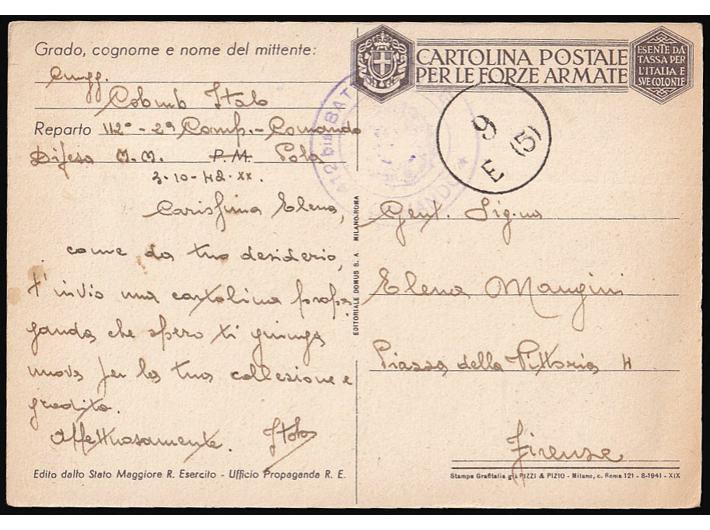 Grado, cognome e nome del mittente:
Colomb Italo
Reparto 112° - 2ª Comp. - Comando
Difesa M.M. P.M. Pola
3-10-42-XX.
Carissima Elena,
come da tuo desiderio,
t'invio una cartolina propa
ganda che spero ti giunga
nuova per la tua collezione e
gradita.
Affettuosamente. Italo
Edito dallo Stato Maggiore R. Esercito - Ufficio Propaganda R. E.
EDITORIALE DOMUS S. A. MILANO-ROMA
CARTOLINA POSTALE
PER LE FORZE ARMATE
ESENTE DA
TASSA PER
L'ITALIA E
SUE COLONIE
112 bis BAT COMANDO
9
E (5)
Gent. Sig.na
Elena Mangini
Piazza della Vittoria 4
Firenze
Stampa Grafitalia già PIZZI & PIZIO - Milano, c. Roma 121 - 8-1941 - XIX